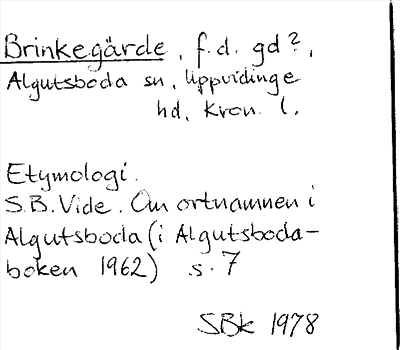 Brinkegärde, f.d. gd?,
Algutsboda sn, Uppvidinge
hd, Kron. l.
Etymologi.
S.B. Vide. Om ortnamnen i
Algutsboda (i Algutsboda-
boken 1962) s. 7
SBk 1978